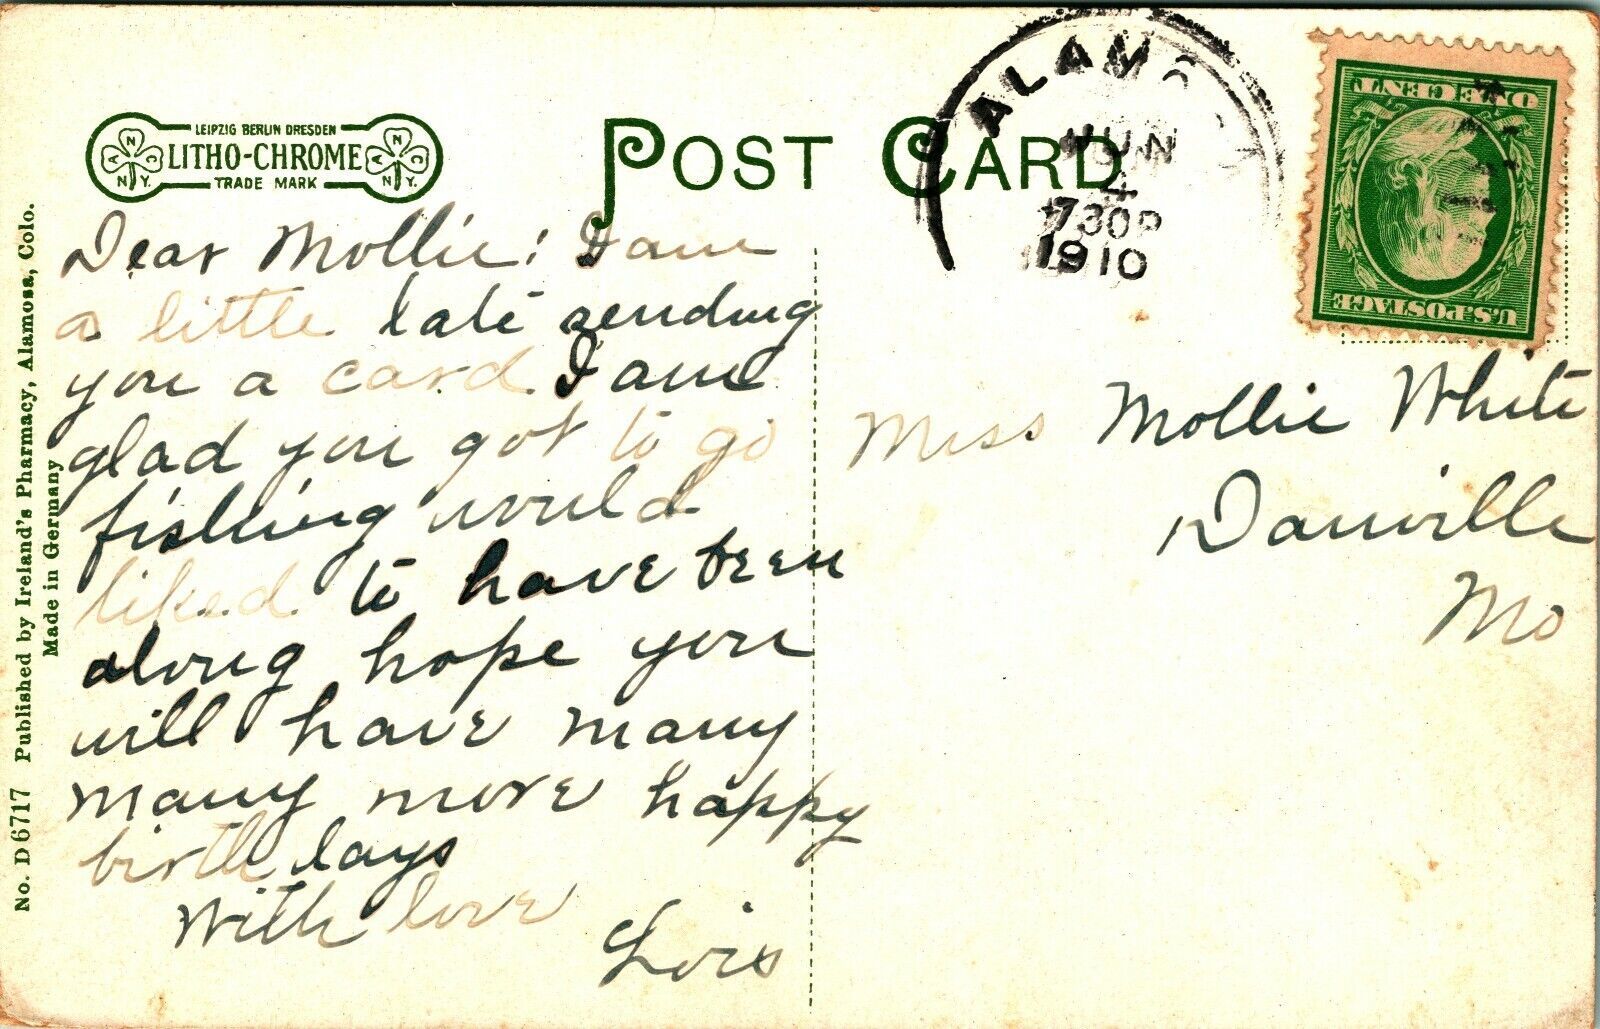 LEIPZIG BERLIN DRESDEN
LITHO-CHROME
TRADE MARK
A N C
N.Y.
A N C
N.Y.
POST CARD
ALAMOS
JUN
4
730P
1910
ONE CENT
U.S. POSTAGE
Dear Mollie: I am
a little late sending
you a card I am
glad you got to go
fishing would
liked to have been
along hope you
will have many
many more happy
birth days
With love
Lois
Miss Mollie White
Danville
Mo
No. D 6717 Published by Ireland's Pharmacy, Alamosa, Colo.
Made in Germany